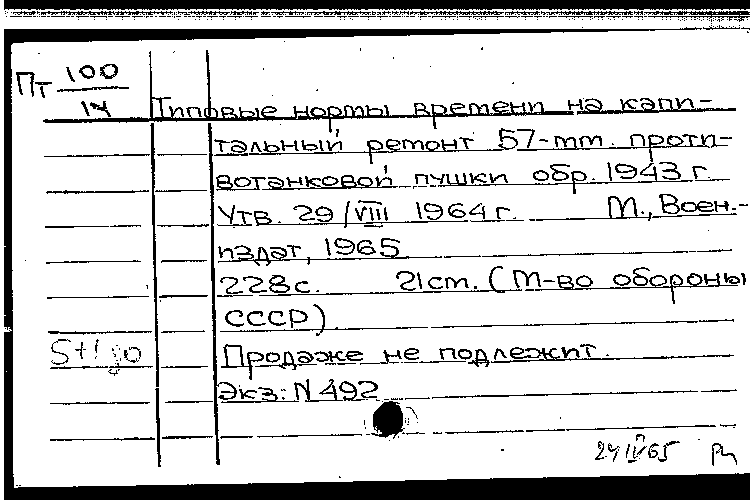 Пт 100
14
Типовые нормы времени на капи-
тальный ремонт 57-mm. проти-
вотанковой пушки обр. 1943 г.
Утв. 29/VIII 1964 г. М., Воен.-
издат, 1965
228 с. 21 cm. (М-во обороны
СССР).
Продаже не подлежит.
Экз: N 492
24 IV 65